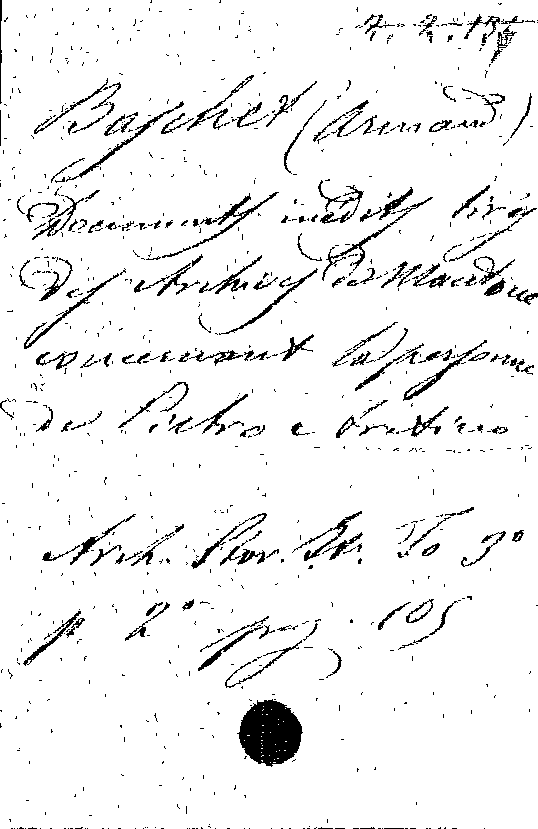 Baschet (Armand)
Documents inédits tirés
des Archives de Mantoue
concernant la personne
de Pietro Aretino
Arch. Stor. It. To 3º
p. 2ª pag. 105